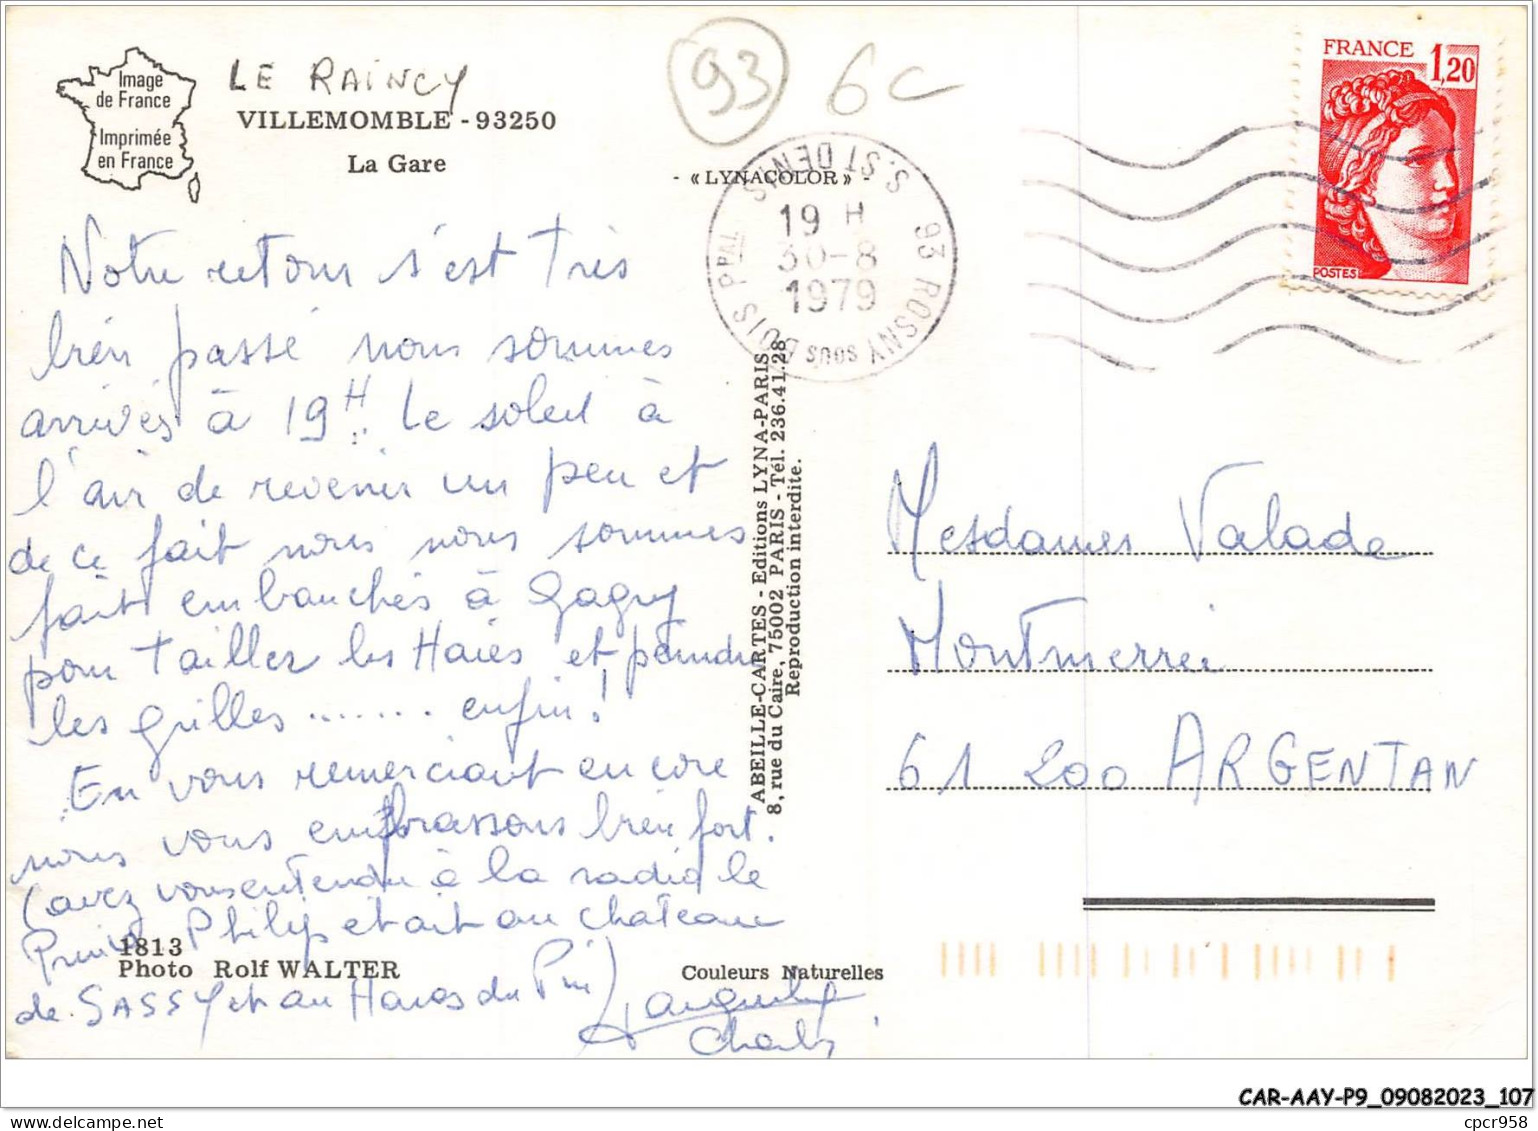 Image
de France
Imprimée
en France
LE RAINCY
VILLEMOMBLE - 93250
La Gare
93
6C
- « LYNACOLOR » -
93 ROSNY SOUS BOIS PPAL S.ST DENIS
19 H
30-8
1979
FRANCE
1,20
POSTES
Notre retour s'est très
bien passé nous sommes
arrivés à 19H. Le soleil à
l'air de revenir un peu et
de ce fait nous nous sommes
fait embauchés à Gagny
pour tailler les Haies et peindre
les grilles ........ enfin!
En vous remerciant encore
nous vous embrassons bien fort.
(avez vous entendu à la radio le
Prince Philip etait au chateau
de SASSY et au Haras du Pin)
Jacqueline
Charles
ABEILLE-CARTES - Editions LYNA-PARIS
8, rue du Caire, 75002 PARIS - Tél. 236.41.28
Reproduction interdite.
Mesdames Valade
Montmerrei
61 200 ARGENTAN
1813
Photo Rolf WALTER
Couleurs Naturelles
CAR-AAY-P9_09082023_107
cpcr958